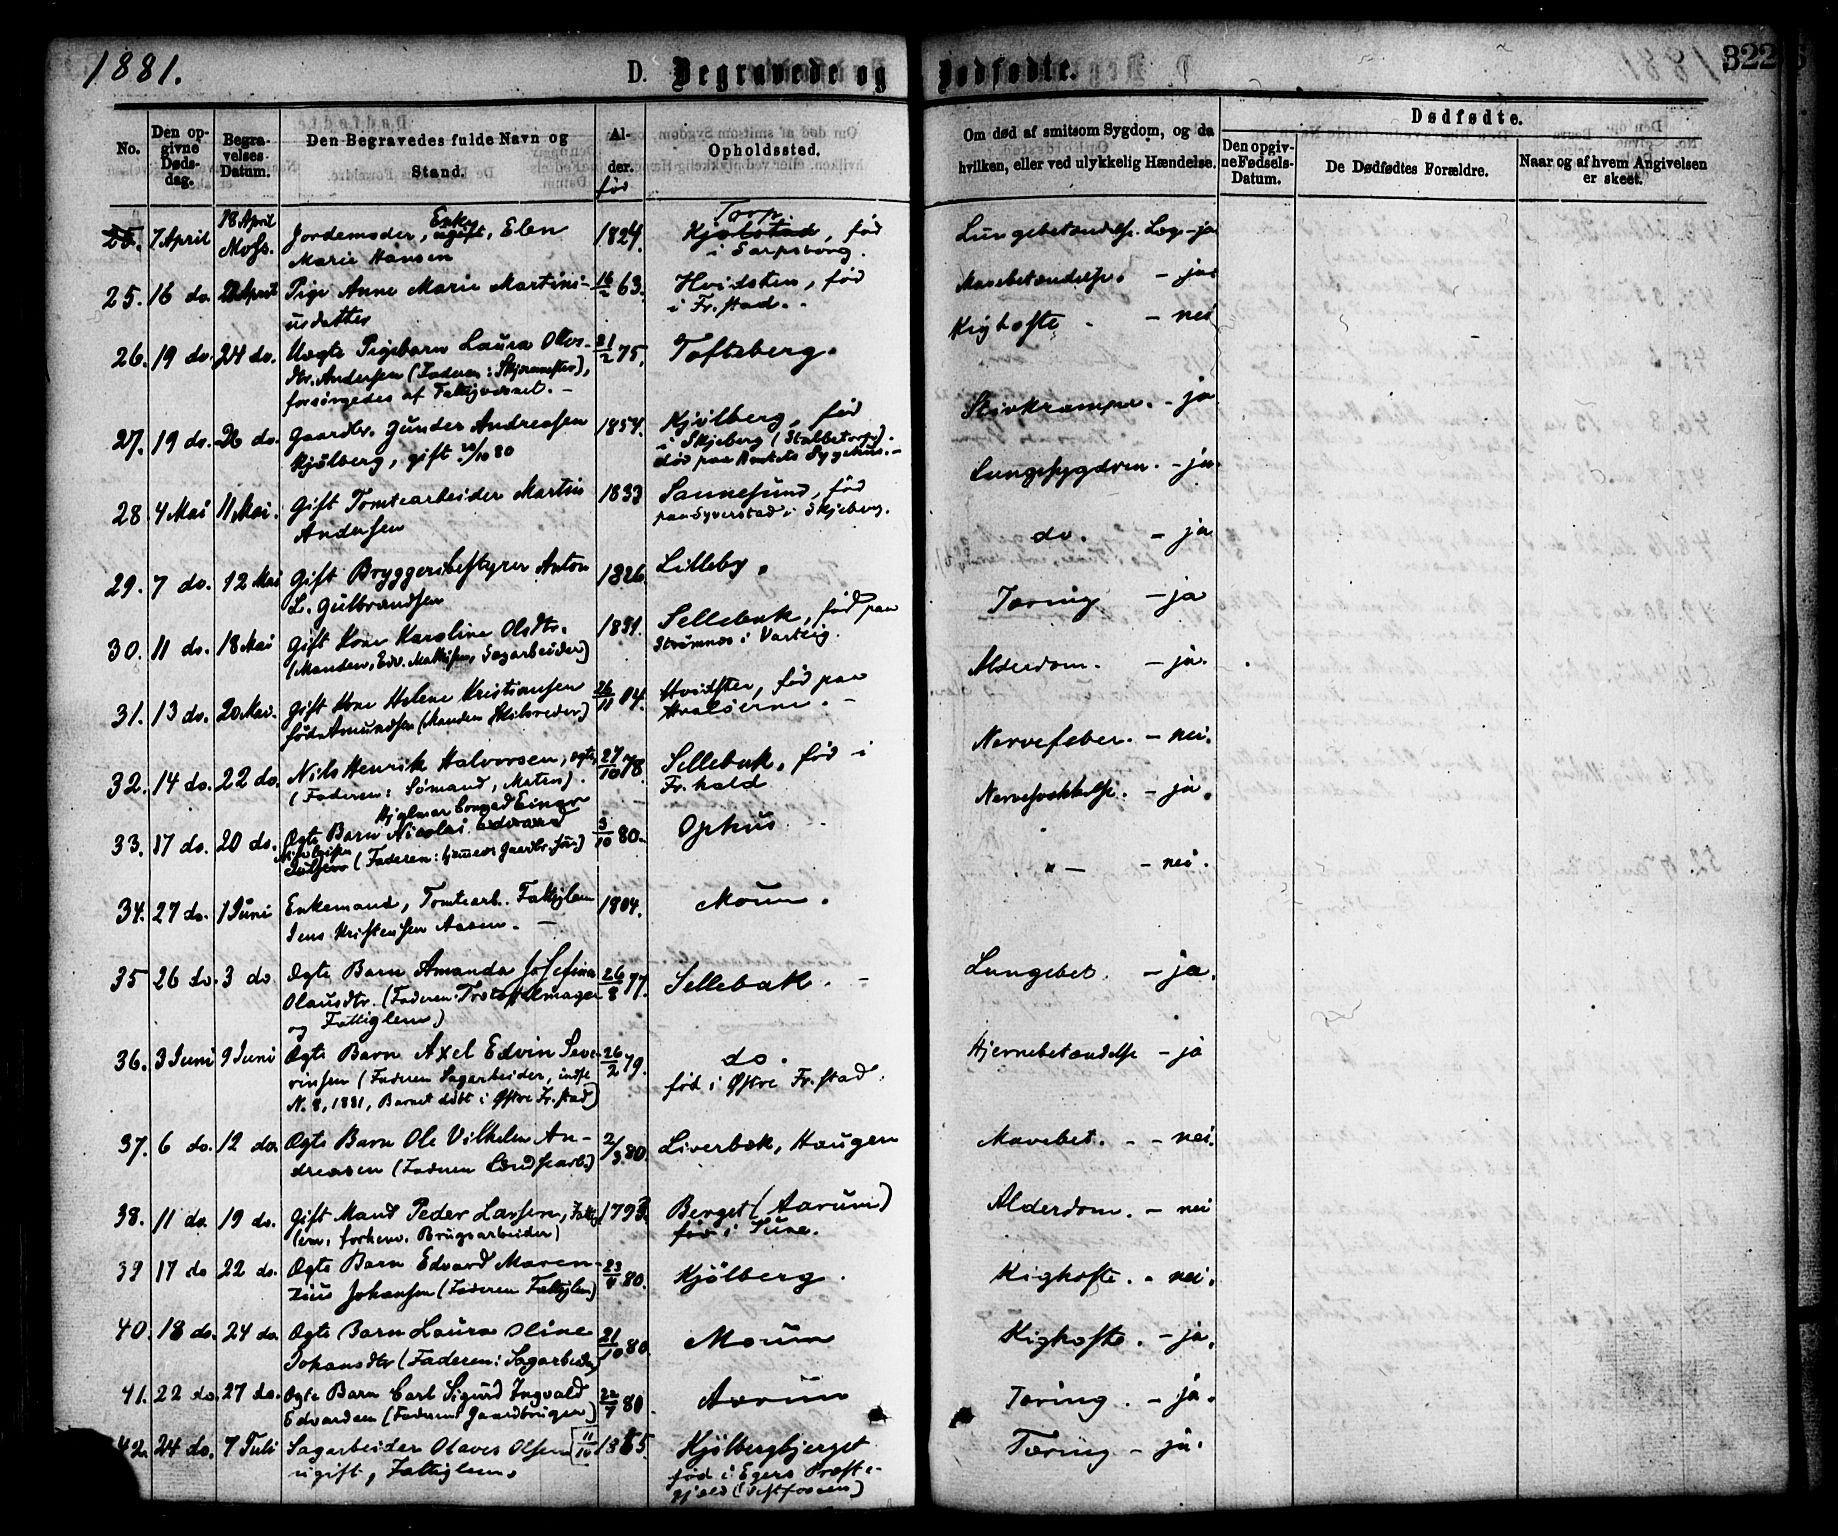 1881.
D. Begravede og Dødfødte.
322
No.
Den opgivne Dødsdag.
Begravelses Datum.
Den Begravedes fulde Navn og Stand.
Alder.
før
Opholdssted.
Om død af smitsom Sygdom, og da hvilken, eller ved ulykkelig Hændelse.
Dødfødte.
Den opgivne Fødsels-Datum.
De Dødfødtes Forældre.
Naar og af hvem Angivelsen er skeet.
7 April 18 April Moss. Jordemoder, Enke, ugift, Elen 1824. Torp. Kjølstad, fød Lungebetændelse. Læg - ja
Marie Hansen i Sarpsborg.
25. 16 do. April Pige Anne Marie Martini- 16/2 63. Hvidsten, fød Mavebetændelse. - ja
usdatter i Fr.stad.
26. 19 do. 24 do. Uægte Pigebarn Laura Oles- 21/2 75. Tofteberg. Kighoste - nei
dtr. Andersen (Faderen: Skjærmester),
forsörgedes af Fattigvæsnet.
27. 19 do. 26 do. Gaardbr. Gunder Andreasen 1854. Kjölberg, fød Stivkrampe. - ja
Kjölberg, gift 80 i Skjeberg (Stalbetorp).
död paa Amtets Sygehus.
28. 4 Mai 11 Mai. Gift Tomtearbeider Martin 1833 Sannesund, fød Lungesygdom. - ja.
Andersen paa Syverstad i Skjeberg.
29. 7 do. 12 Mai Gift Bryggeribestyrer Anton 1826. Lilleby. do. - ja
L. Gulbrandsen
30. 11 do. 18 Mai Gift Kone Karoline Olsdtr. 1831. Sellebak, fød paa Tæring - ja
(Manden, Edv. Mathisen, Sagarbeider) Strömnes i Varteig.
31. 13 do. 20 Mai. Gift Kone Helene Kristiansen 26/11 04. Hvidsten, fød paa Alderdom. - ja.
föde Amundsen (Manden Skibsreder) Hvaløerne.
32. 14 do. 22 do. Nils Henrik Halvorsen, ægte, 27/10 78. Sellebak, fød i Nervefeber. - nei.
(Faderen: Sømand, Maten). Fr.hald
Hjalmar Conrad Einar
33. 17 do. 20 do. Ægte Barn Nicolai Edvard 3/10 80. Ophus Nervesvækkelse. - ja.
(Faderen: Gaardbr.)
34. 27 do. 1 Juni Enkemand, Tomtearb. Fattiglem 1804. Moum. " - - nei.
Jens Kristensen Aasen.
35 26 do. 3 do Ægte Barn Amanda Josefine 26/8 77. Sellebak. Lungebet. - ja.
Olausdtr. (Faderen: Trætøffelmager
og Fattiglem)
36. 3 Juni 9 Juni Ægte Barn Axel Edvin Seve- 26/2 79. do. Hjernebetændelse - ja
rinsen (Faderen Sagarbeider, indfl. fød i Østre Fr.stad.
N. 8, 1881, Barnet döbt i Østre Fr.stad)
37. 6 do. 12 do. Ægte Barn Ole Vilhelm An- 2/3 80. Liverbæk, Haugen Mavebet. - nei.
dreasen (Faderen Landsearb.)
38. 11 do. 19 do. Gift Mand Peder Larsen, Fattig- 1793. Berget (Aarum) Alderdom. - nei
lem, forhenv. Brugsarbeider) fød i Tune.
39 17 do 22 do. Ægte Barn Edvard Maren- 23/ 80. Kjölberg. Kighoste. - nei.
tius Johansen (Faderen Fattiglem)
40. 18 do. 24 do Ægte Barn Laura Oline 21/10 80. Moum Kighoste. - ja.
Johansdtr (Faderen: Sagarbeider)
41. 22 do. 27 do. Ægte Barn Carl Sigurd Ingvald 22/7 80. Aarum Tæring. - ja.
Edvardsen (Faderen Gaardbruger)
42. 24 do. 7 Juli Sagarbeider Olaves Olsen 11/10 1865. Kjölbergbjerget Tæring - ja.
ugift, Fattiglem. fød i Egers Præste-
gjæld (Vestfossen)